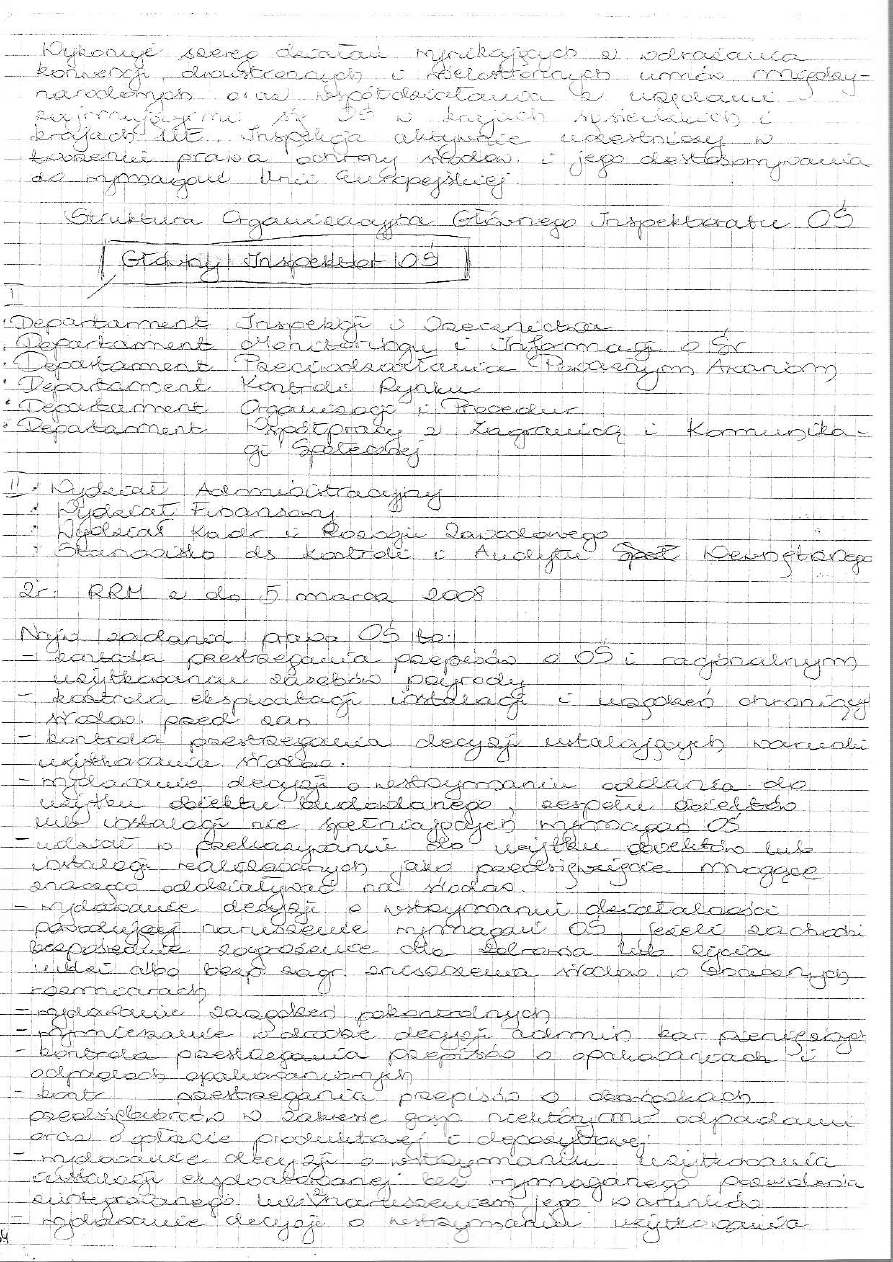 Wykonuje szereg działań wynikających z wdrażania
konwencji, dwustronnych i wielostronnych umów między-
narodowych oraz współdziałania z urzędami
zajmującymi się OŚ w krajach sąsiedzkich i
krajach UE. Inspekcja aktywnie uczestniczy w
tworzeniu prawa ochrony środow. i jego dostosowywania
do wymagań Unii Europejskiej.
Struktura Organizacyjna Głównego Inspektoratu OŚ
Główny Inspektor OŚ
I
· Departament Inspekcji i Orzecznictwa
· Departament Monitoringu i Informacji o Śr
· Departament Przeciwdziałania Poważnym Awariom
· Departament Kontroli Rynku
· Departament Organizacji i Procedur
· Departament Współpracy z Zagranicą i Komunika-
cji Społecznej
II · Wydział Administracyjny
· Wydział Finansowy
· Wydział Kadr i Rozwoju Zawodowego
· Stanowisko ds Kontroli i Audytu Społ Wewnętrznego
Źr: RRM z do 5 marca 2008
Najw zadania prawa OŚ to:
- kontrola przestrzegania przepisów o OŚ i racjonalnym
użytkowaniu zasobów przyrody
- kontrola eksploatacji instalacji i urządzeń chroniący
środow. przed zan
- kontrola przestrzegania decyzji ustalających warunki
użytkowania środow.
- wydawanie decyzji o wstrzymaniu oddania do
użytku obiektu budowlanego, zespołu obiektów
lub instalacji nie spełniających wymagań OŚ
- udział w przekazywaniu do użytku obiektów lub
instalacji realizowanych jako przedsięwzięcie mogące
znacząco oddziaływać na środow.
- wydawanie decyzji o wstrzymaniu działalności
powodującej naruszenie wymagań OŚ, jeżeli zachodzi
bezpośrednie zagrożenie dla zdrowia lub życia
ludzi albo bezp zagr. zniszczenia środow w znacznych
rozmiarach
- wydawanie zarządzeń pokontrolnych
- wymierzanie w drodze decyzji admin kar pieniężnych
- kontrola przestrzegania przepisów o opakowaniach i
odpadach opakowaniowych
- kontr przestrzegania przepisów o obowiązkach
przedsiębiorców w zakresie gosp niektórymi odpadami
oraz o opłacie produktowej i depozytowej
- wydawanie decyzji o wstrzymaniu użytkowania
instalacji eksploatowanej bez wymaganego pozwolenia
zintegrowanego lub z naruszeniem jego warunków
- wydawanie decyzji o wstrzymaniu użytkowania